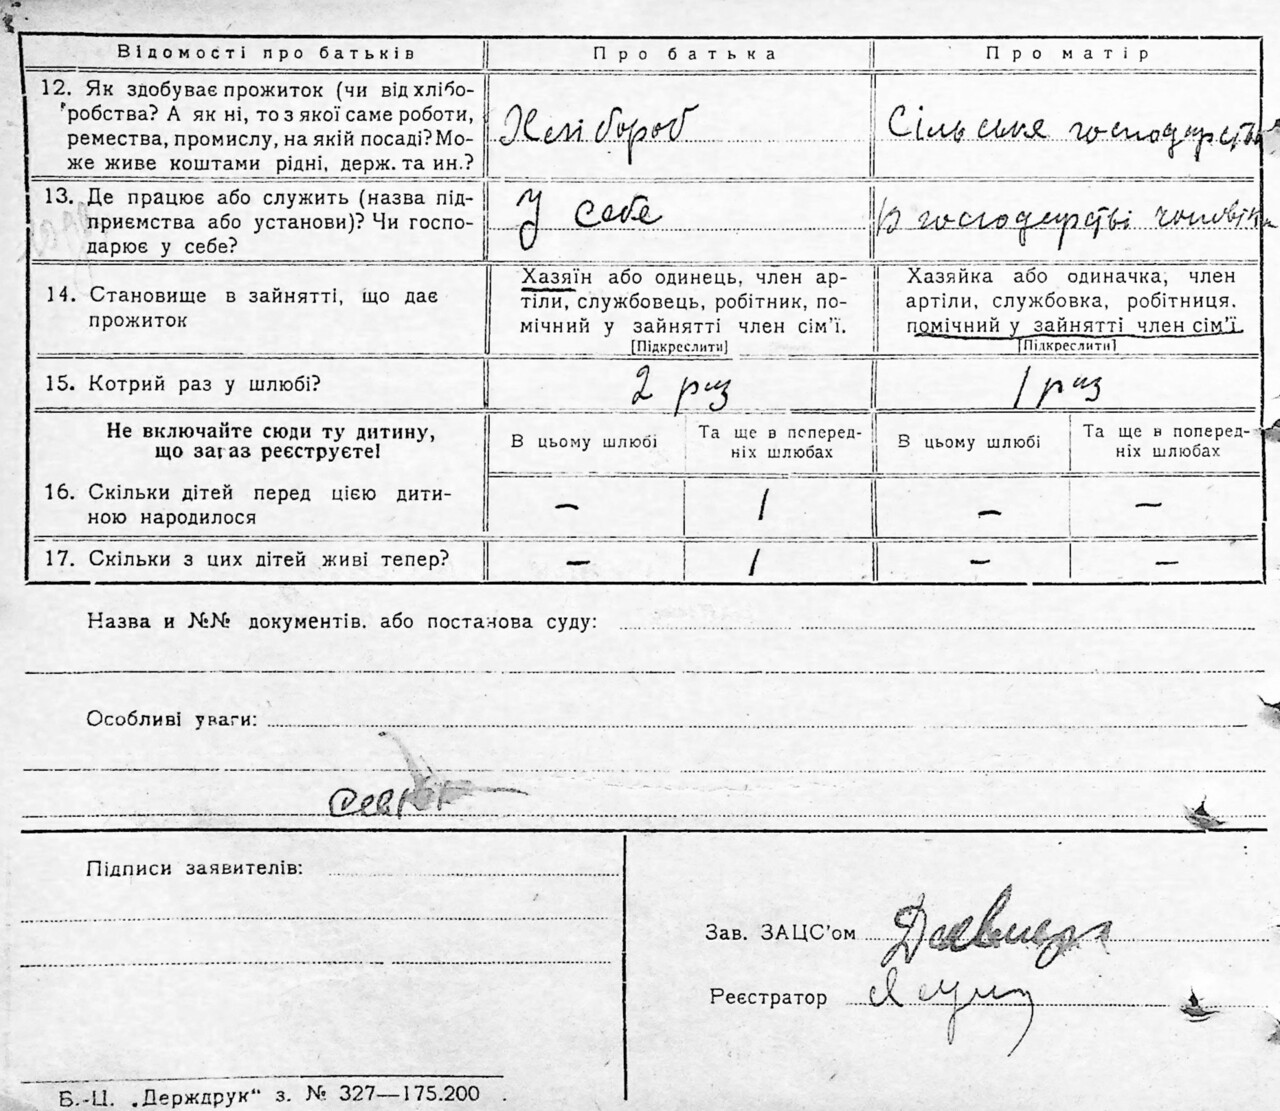 Відомості про батьків
Про батька
Про матір
12. Як здобуває прожиток (чи від хлібо-
робства? А як ні, то з якої саме роботи,
ремества, промислу, на якій посаді? Мо-
же живе коштами рідні, держ. та ин.?
Хлібороб
Сільське господарство
13. Де працює або служить (назва під-
приємства або установи)? Чи госпо-
дарює у себе?
У себе
В господарстві чоловіка
14. Становище в зайнятті, що дає
прожиток
Хазяїн або одинець, член ар-
тіли, службовець, робітник, по-
мічний у зайнятті член сім'ї.
[Підкреслити]
Хазяйка або одиначка, член
артіли, службовка, робітниця.
помічний у зайнятті член сім'ї
[Підкреслити]
15. Котрий раз у шлюбі?
2 раз
1 раз
Не включайте сюди ту дитину,
що загаз реєструєте!
В цьому шлюбі
Та ще в поперед-
ніх шлюбах
В цьому шлюбі
Та ще в поперед-
ніх шлюбах
16. Скільки дітей перед цією дити-
ною народилося
– 1 – –
17. Скільки з цих дітей живі тепер?
– 1 – –
Назва и №№ документів. або постанова суду:
Особливі уваги:
Підписи заявителів:
Зав. ЗАЦС'ом
Реєстратор
Б.-Ц. „Держдрук" з. № 327—175.200